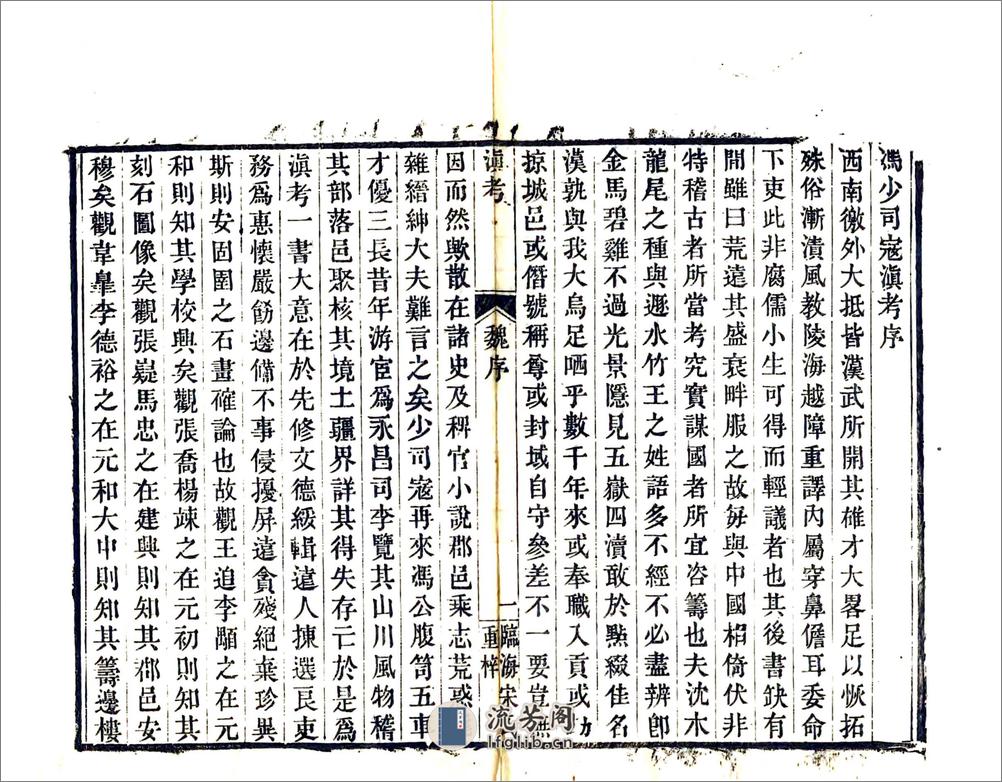 馮少司寇滇考序
西南徼外大抵皆漢武所開其雄才大畧足以恢拓
殊俗漸漬風教陵海越障重譯內屬穿鼻儋耳委命
下吏此非腐儒小生可得而輕議者也其後書缺有
間雖曰荒遠其盛衰畔服之故每與中國相倚伏非
特稽古者所當考究實謀國者所宜咨籌也夫沈木
龍尾之種與遯水竹王之姓語多不經不必盡辨卽
金馬碧雞不過光景隱見五嶽四瀆敢於點綴佳名
漢孰與我大烏足哂乎數千年來或奉職入貢或
掠城邑或僭號稱尊或封域自守參差不一要豈無
滇考
魏序
一
臨海宋
重梓
因而然歟散在諸史及稗官小說郡邑乘志荒惑
雜縉紳大夫難言之矣少司寇再來馮公腹笥五車
才優三長昔年游宦爲永昌司李覽其山川風物稽
其部落邑聚核其境土疆界詳其得失存亡於是爲
滇考一書大意在於先修文德綏輯遠人揀選良吏
務爲惠懷嚴飭邊備不事侵擾屏遠貪殘絕棄珍異
斯則安固圉之石畫確論也故觀王追李顒之在元
和則知其學校興矣觀張喬楊竦之在元初則知其
刻石圖像矣觀張嶷馬忠之在建興則知其郡邑安
穆矣觀韋臯李德裕之在元和大中則知其籌邊樓
流芳阁
lfglib.cn